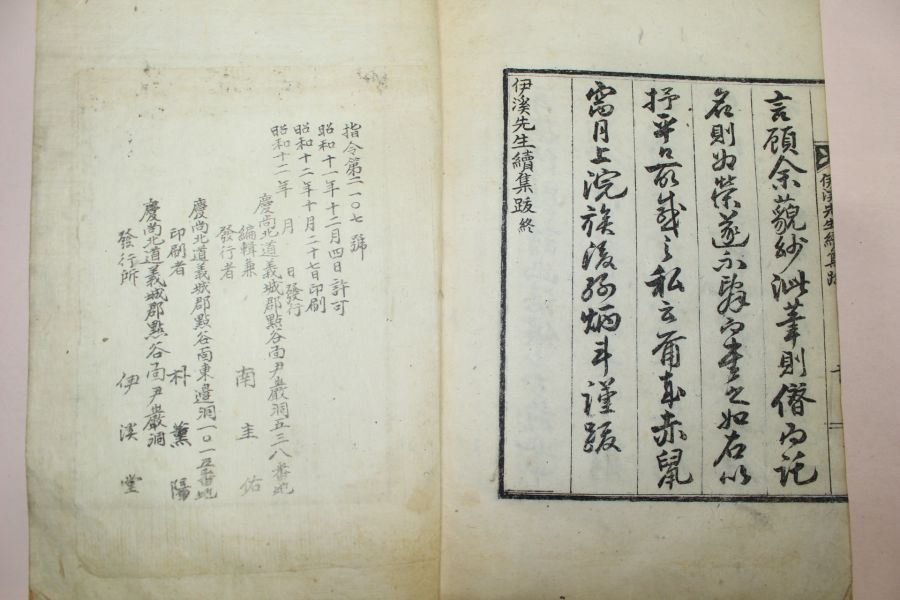 言顧余藐紗泚筆則僭而託
名則為榮遂不辭而書之如右以
抒平日所感之私云爾歲赤鼠
窩月上浣族後孫炳斗謹跋
伊溪先生續集跋終
伊溪先生續集跋
指令第二一〇七號
昭和十一年十二月四日許可
昭和十二年十月二十七日印刷
昭和十二年 月 日發行
慶尚北道義城郡點谷面尹巖洞五三八番地
編輯兼
發行者 南圭佑
慶尚北道義城郡點谷面東邊洞一〇一五番地
印刷者 朴薰陽
慶尚北道義城郡點谷面尹巖洞
發行所 伊溪堂